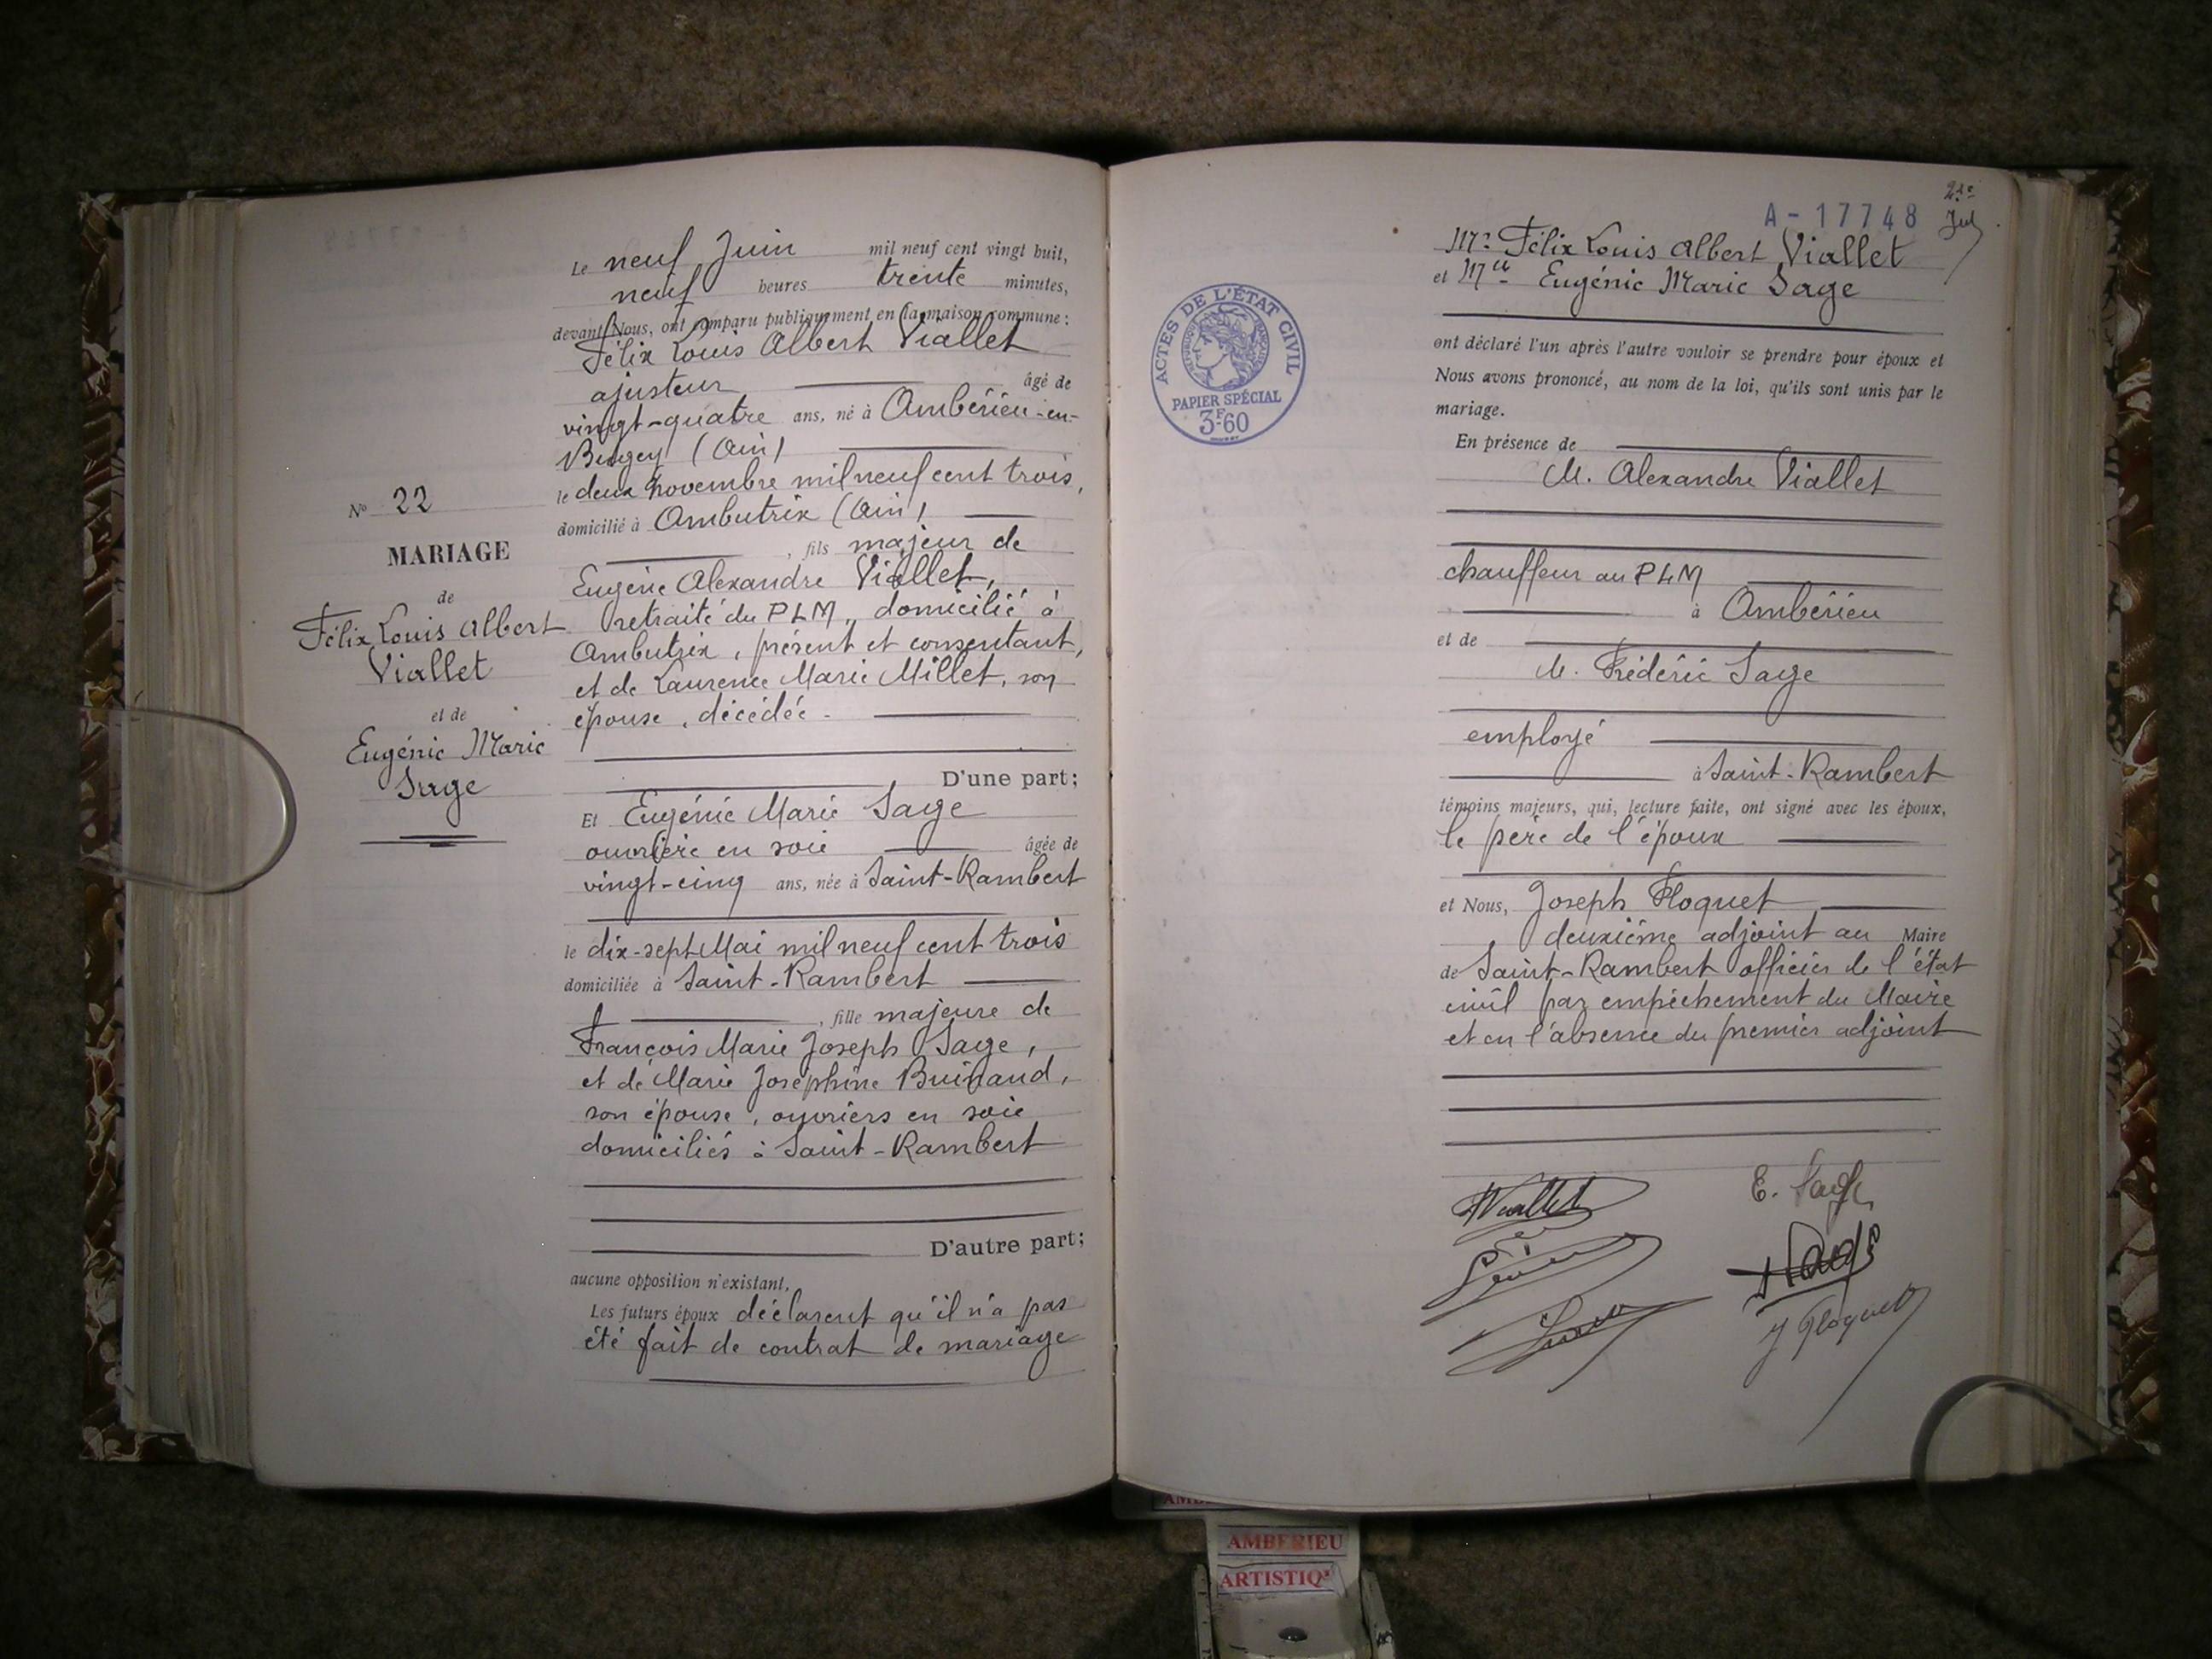 Le neuf Juin mil neuf cent vingt huit,
neuf heures trente minutes,
devant Nous, ont comparu publiquement en la maison commune :
Félix Louis Albert Viallet
ajusteur âgé de
vingt-quatre ans, né à Ambérieu-en-
Bugey (Ain)
le deux novembre mil neuf cent trois,
domicilié à Ambutrix (Ain)
, fils majeur de
Eugène Alexandre Viallet,
retraité du PLM, domicilié à
Ambutrix, présent et consentant,
et de Laurence Marie Millet, son
épouse, décédée.
D'une part;
Et Eugénie Marie Sage
ouvrière en soie âgée de
vingt-cinq ans, née à Saint-Rambert
le dix-sept Mai mil neuf cent trois
domiciliée à Saint-Rambert
, fille majeure de
François Marie Joseph Sage,
et de Marie Joséphine Buinand,
son épouse, ouvriers en soie
domiciliés à Saint-Rambert
D'autre part;
aucune opposition n'existant,
Les futurs époux déclarent qu'il n'a pas
été fait de contrat de mariage
No 22
MARIAGE
de
Félix Louis Albert
Viallet
et de
Eugénie Marie
Sage
A-17748
ACTES DE L'ÉTAT CIVIL
PAPIER SPÉCIAL
3F60
Mr Félix Louis Albert Viallet
et Mlle Eugénie Marie Sage
ont déclaré l'un après l'autre vouloir se prendre pour époux et
Nous avons prononcé, au nom de la loi, qu'ils sont unis par le
mariage.
En présence de
M. Alexandre Viallet
chauffeur au PLM
à Ambérieu
et de
M. Frédéric Sage
employé
à Saint-Rambert
témoins majeurs, qui, lecture faite, ont signé avec les époux,
le père de l'époux
et Nous, Joseph Floquet
deuxième adjoint au Maire
de Saint-Rambert officier de l'état
civil par empêchement du Maire
et en l'absence du premier adjoint
E. Sage
J Floquet
AMBERIEU
ARTISTIQ